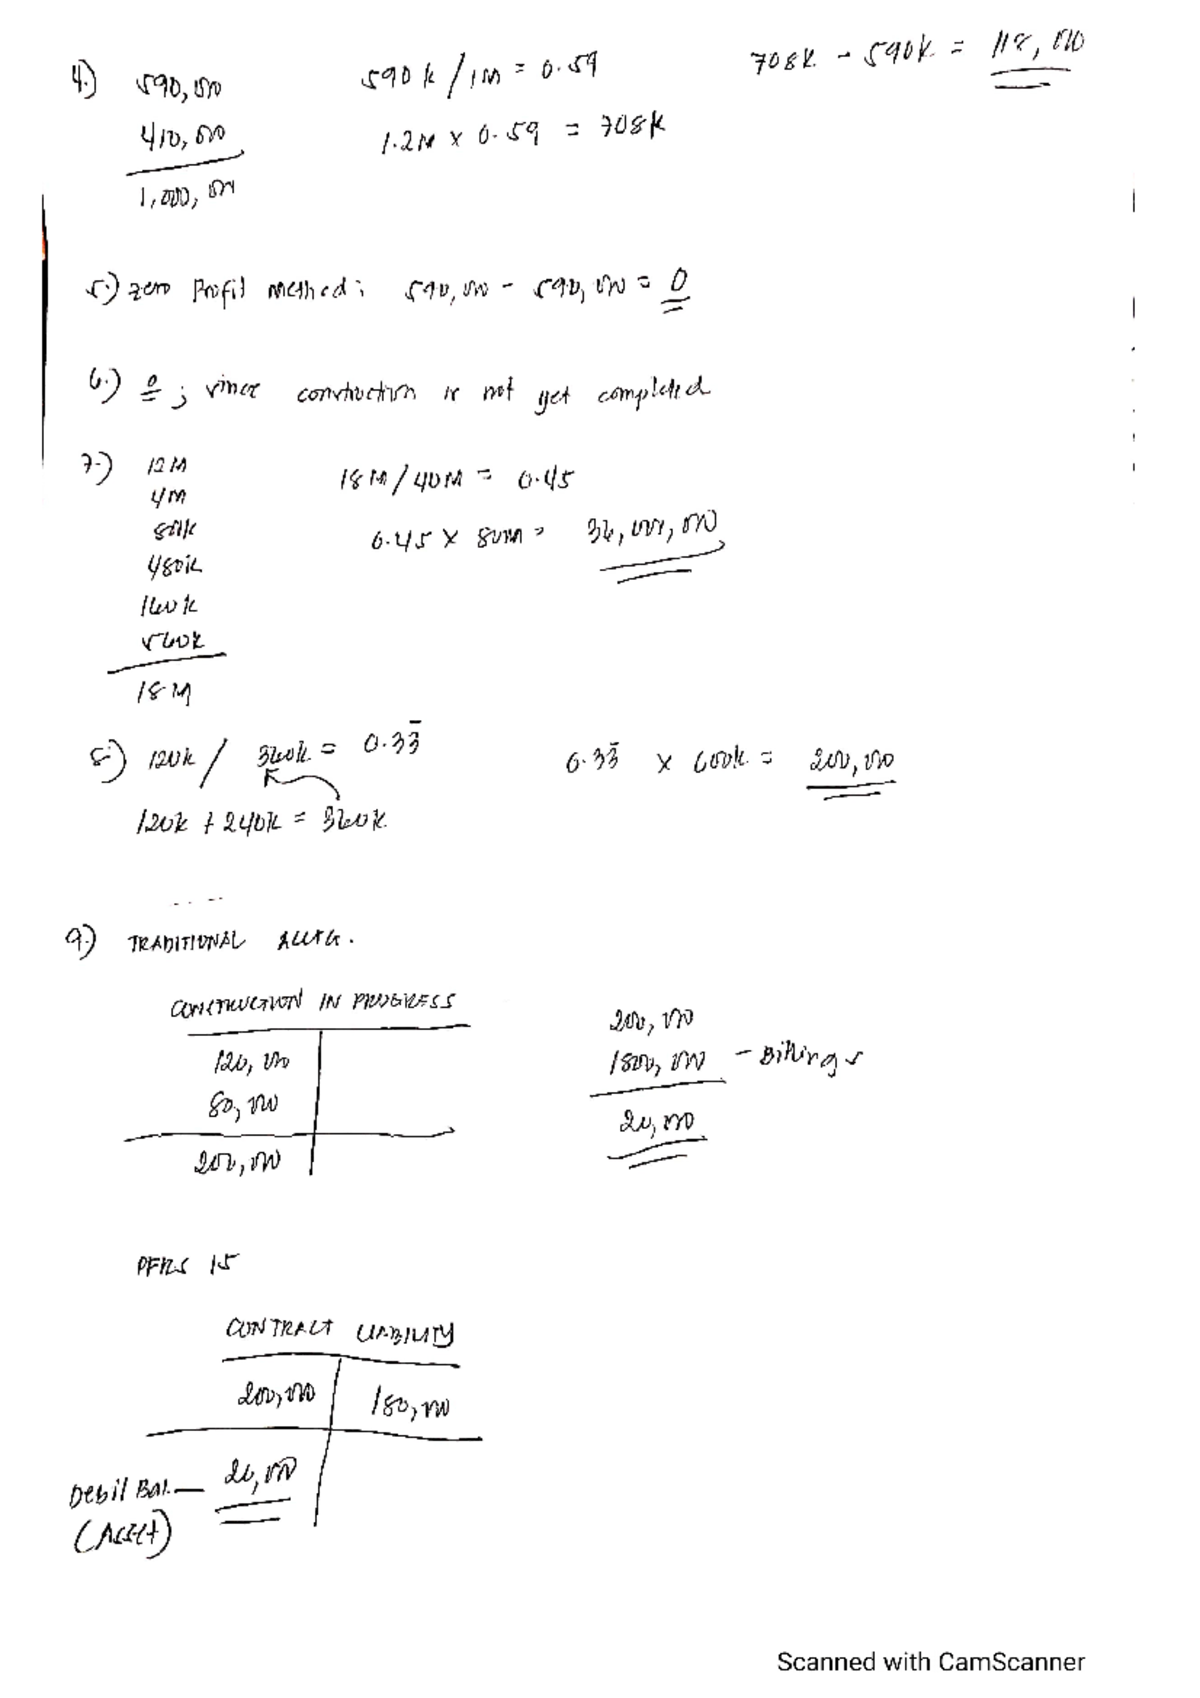 4.) 590,000 590k / 1M = 0.59 708k - 590k = 118,000
410,000 1.2M x 0.59 = 708k
1,000,000
5.) zero Profit method: 590,000 - 590,000 = 0
6.) 0 ; since construction is not yet completed
7.) 12M 18M / 40M = 0.45
4M
800k 0.45 x 80M = 36,000,000
480k
160k
560k
18M
8.) 120k / 360k = 0.33 0.33 x 600k = 200,000
120k + 240k = 360k
9.) TRADITIONAL ACCTG.
CONSTRUCTION IN PROGRESS 200,000
120,000 1800,000 - Billings
80,000 20,000
200,000
PFRS 15
CONTRACT LIABILITY
200,000 180,000
Debit Bal. — 20,000
(Asset)
Scanned with CamScanner